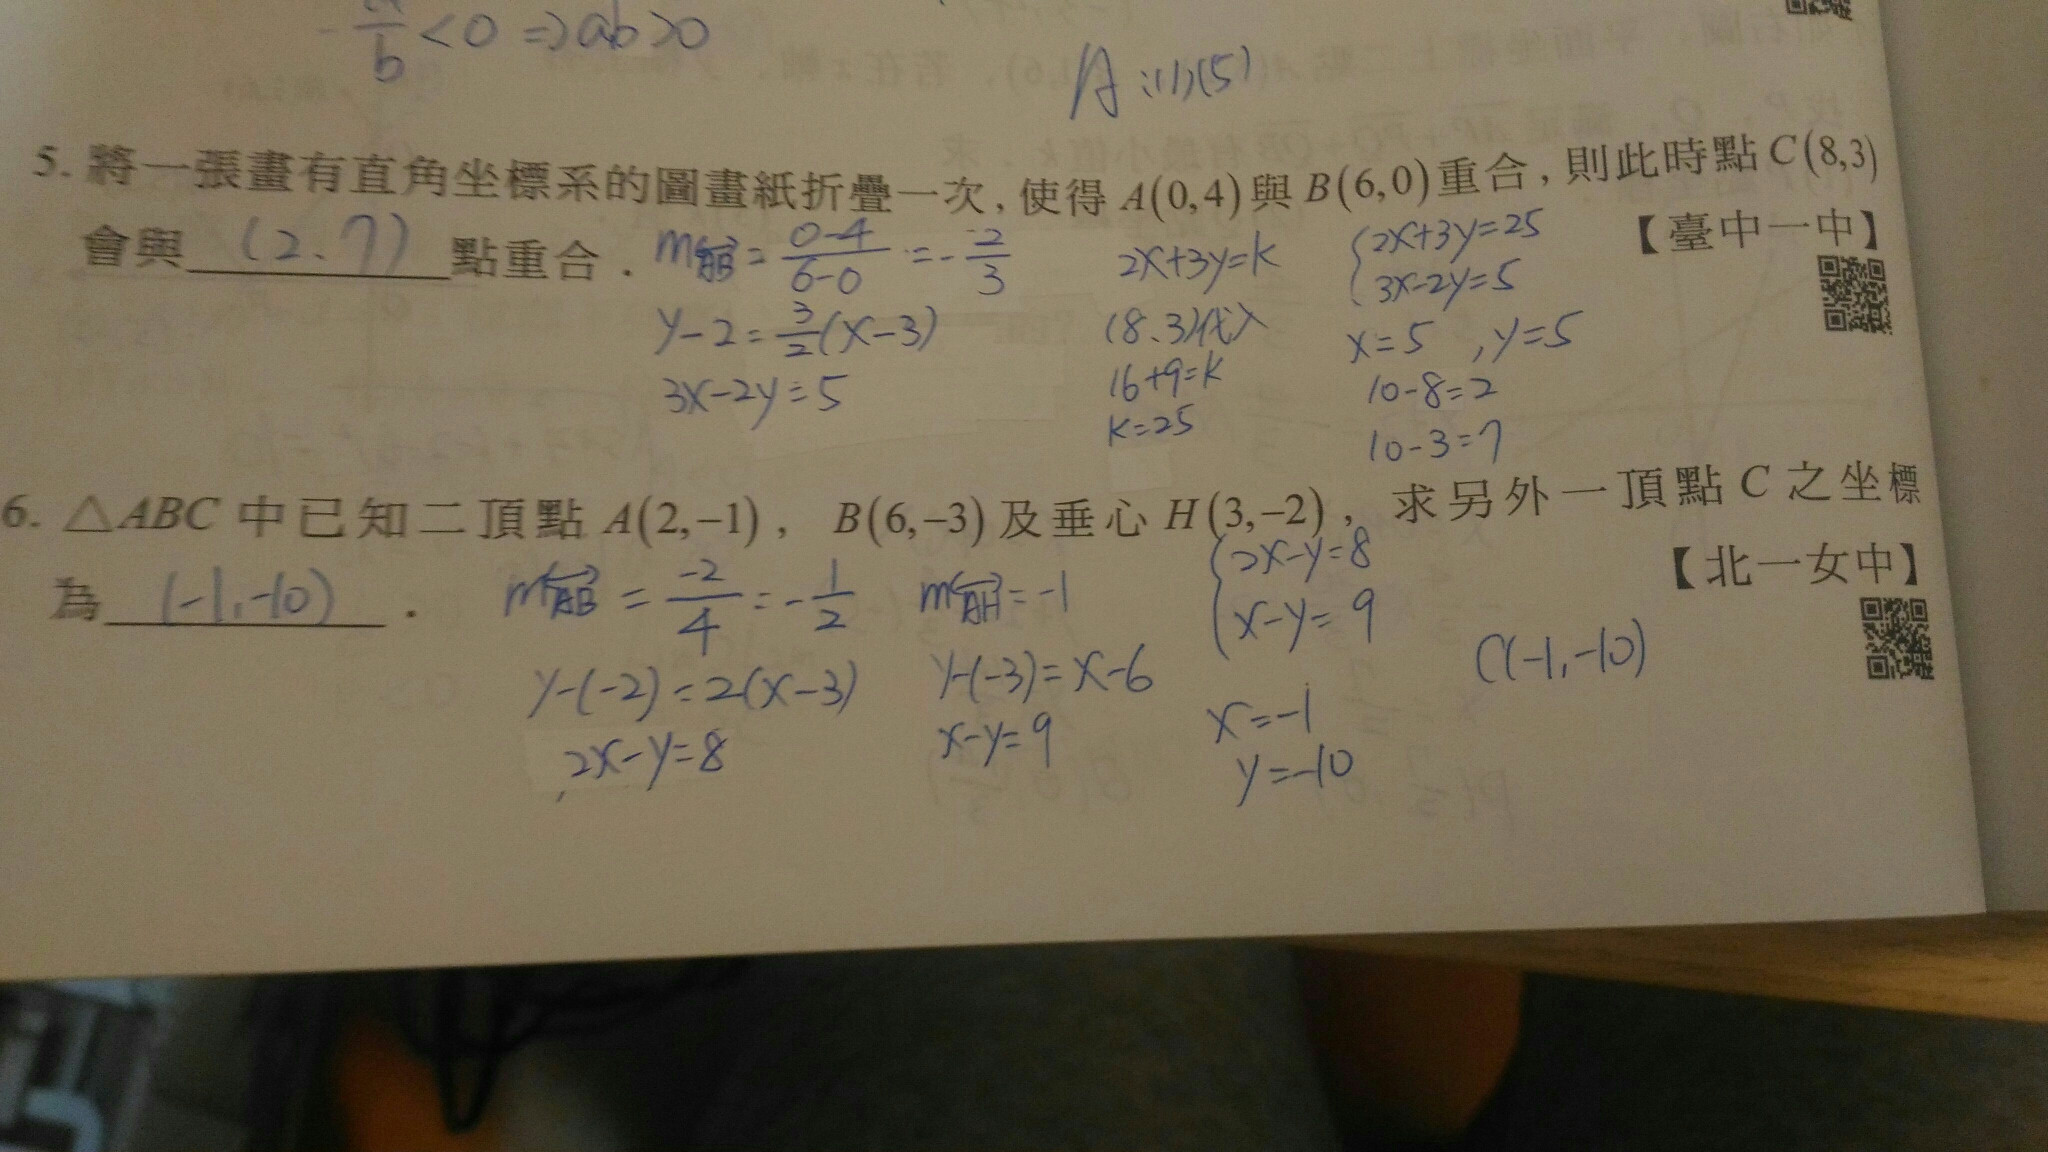 b < 0 => ab > 0
A:(1)(5)
5. 將一張畫有直角坐標系的圖畫紙折疊一次,使得 A(0,4) 與 B(6,0) 重合,則此時點 C(8,3)
會與 (2、7) 點重合. 【臺中一中】
mAB = (0-4)/(6-0) = -2/3
y-2 = 3/2(x-3)
3x-2y=5
2x+3y=k
(8、3)代入
16+9=k
k=25
{2x+3y=25
3x-2y=5
x=5 , y=5
10-8=2
10-3=7
6. △ABC 中已知二頂點 A(2,-1), B(6,-3) 及垂心 H(3,-2), 求另外一頂點 C 之坐標
為 (-1,-10) . 【北一女中】
mAB = -2/4 = -1/2
y-(-2)=2(x-3)
2x-y=8
mAH = -1
y-(-3)=x-6
x-y=9
{2x-y=8
x-y=9
x=-1
y=-10
C(-1,-10)